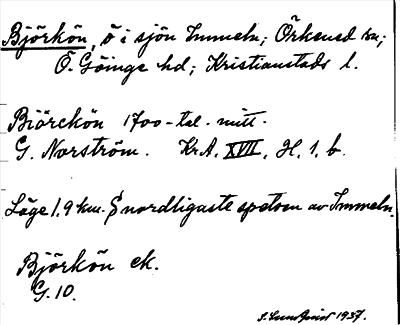 Björkön, ö i sjön Immeln; Örkened sn;
Ö. Göinge hd; Kristianstads l.
Biörckön 1700-tal. mitt.
G. Norström. Kr.A. XVII. H. 1. b.
Läge 1,9 km. S nordligaste spetsen av Immeln.
Björkön ek.
G. 10.
S. Lundquist 1937.